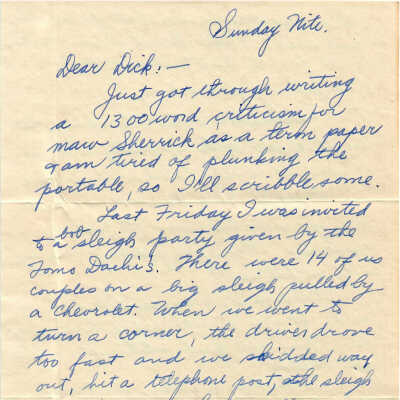 Sunday Nite.
Dear Dick:—
Just got through writing
a 1300 word criticism for
maw Sherrick as a term paper
& am tired of plunking the
portable, so I'll scribble some.
Last Friday I was invited
bob
to a sleigh party given by the
Tomo Dachi's. There were 14 of us
couples on a big sleigh pulled by
a Chevrolet. When we went to
turn a corner, the driver drove
too fast and we skidded way
out, hit a telephone post, the sleigh